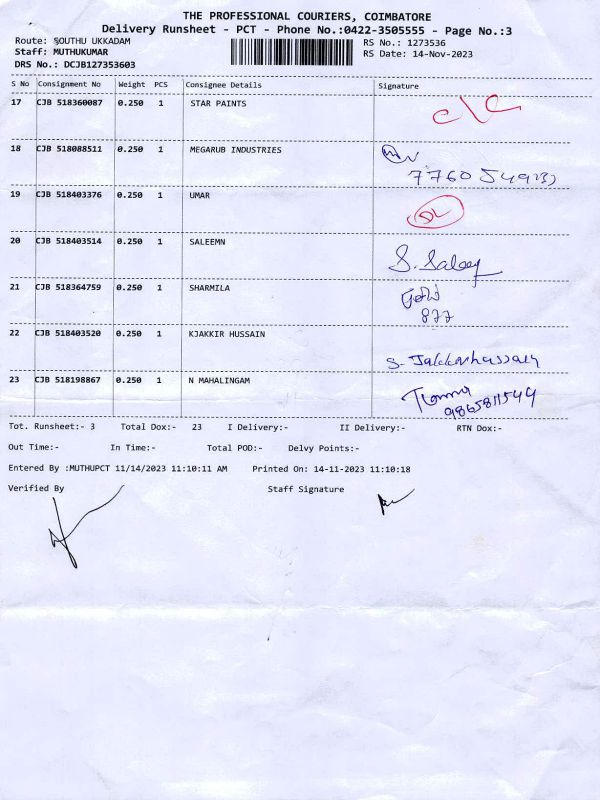 THE PROFESSIONAL COURIERS, COIMBATORE
Delivery Runsheet - PCT - Phone No.:0422-3505555 - Page No.:3
Route: SOUTHU UKKADAM
RS No.: 1273536
Staff: MUTHUKUMAR
RS Date: 14-Nov-2023
DRS No.: DCJB127353603
S No Consignment No Weight PCS Consignee Details Signature
17 CJB 518360087 0.250 1 STAR PAINTS
18 CJB 518088511 0.250 1 MEGARUB INDUSTRIES
19 CJB 518403376 0.250 1 UMAR DL
20 CJB 518403514 0.250 1 SALEEMN
21 CJB 518364759 0.250 1 SHARMILA
877
22 CJB 518403520 0.250 1 KJAKKIR HUSSAIN
23 CJB 518198867 0.250 1 N MAHALINGAM
9865811544
Tot. Runsheet:- 3 Total Dox:- 23 I Delivery:- II Delivery:- RTN Dox:-
Out Time:- In Time:- Total POD:- Delvy Points:-
Entered By :MUTHUPCT 11/14/2023 11:10:11 AM Printed On: 14-11-2023 11:10:18
Verified By Staff Signature